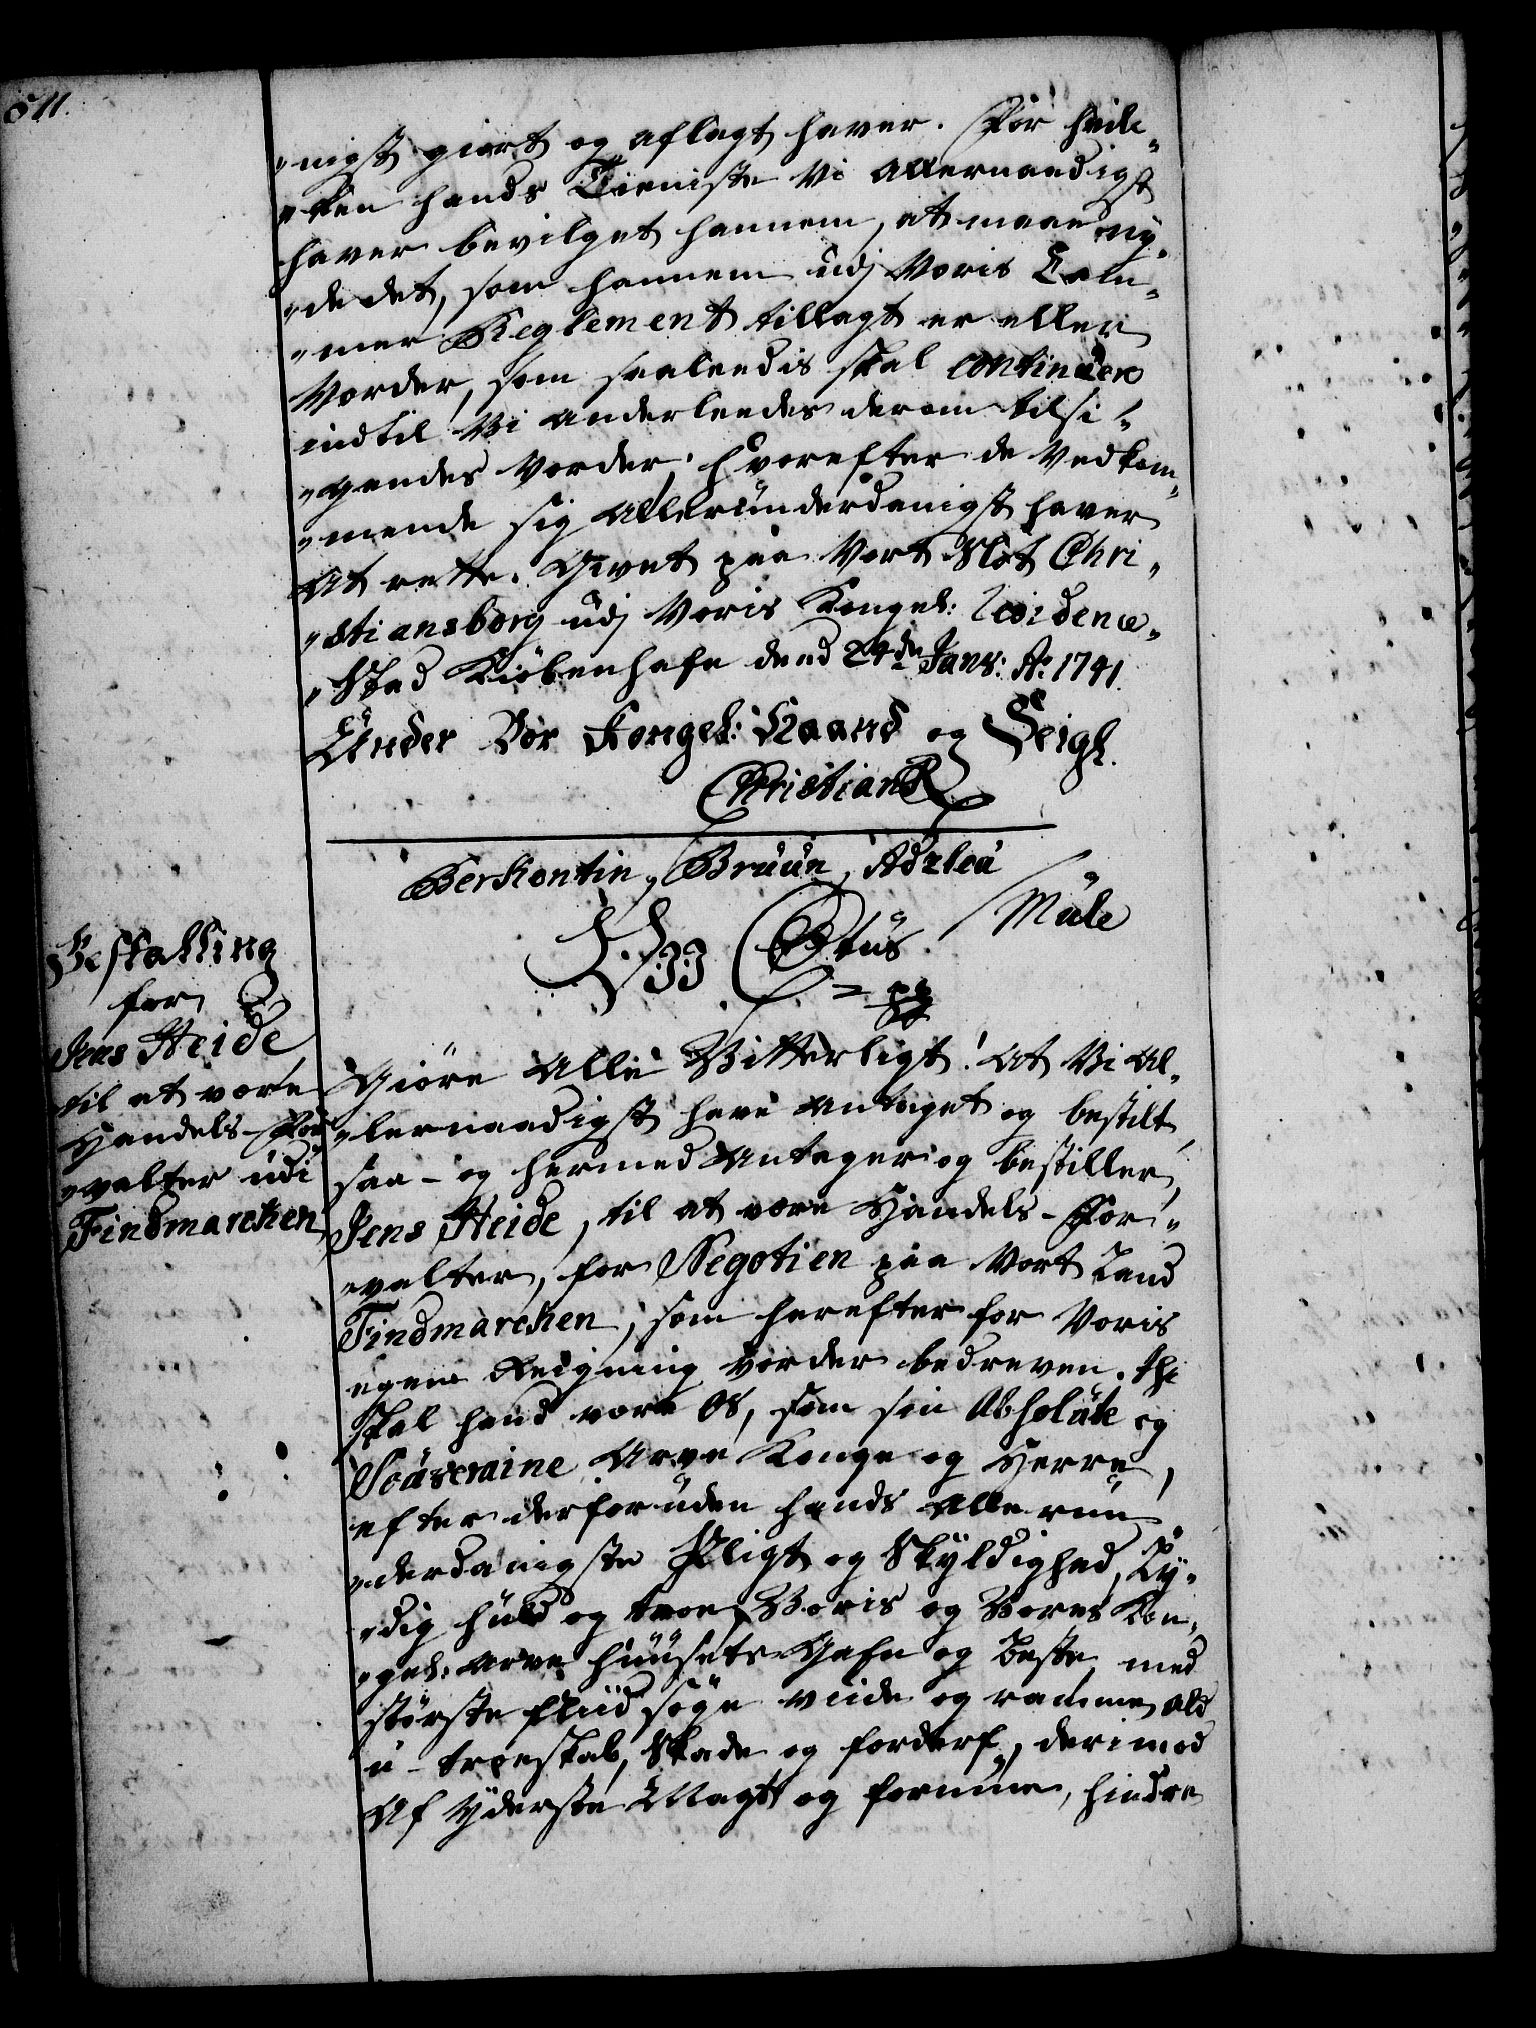 511.
"nigst giort og aflagt haver. For hvil-
"ken hands Tieniste Vi Allernaadigst
haver bevilget hannem, at maae ny-
"de det, som hannem udj Voris Cam-
"mer Reglement tillagt er eller
Vorder, som saaleedis skal continuere
indtil Vi anderleedes derom tilsi-
"gendes Vorder; hvorefter de Vedkom-
"mende sig Allerunderdanigst haver
At rette. Givet paa Vort Slot Chri-
"stiansborg udj Voris Kongel: Residence-
"Stad Kiøbenhafn dend 24de Janr: Ao: 1741.
Under Vor Kongel: Haand og Seigl.
Christian R
Berkentin, Bruun, Adzleu
Müle
Vii C 6tus
pp
Bestalling
for
Jens Heide
til at være
Handels-For
"valter udi
Findmarcken
Giøre Alle Vitterligt! At Vi Al-
"lernaadigst have Antaget og bestilt
saa - og hermed Antager og bestiller,
Jens Heide, til at være Handels-For-
"valter, for Negotien paa Vort Land
Findmarcken, som herefter for Voris
egen Reigning vorder bedreven. Thj
skal hand være Os, som sin Absolute og
Souveraine Arve Konge og Herre,
efter derforuden hands Allerun-
"derdanigste Pligt og Skyldighed, Ly-
"dig huld og troe, Voris og Vores Kon-
"gel: Arve Huusets Gafn og Beste med
største fliid søge viide og ramme, ald
u-troeskab, Skade og forderf, derimod
Af Yderste Magt og formue, hindre